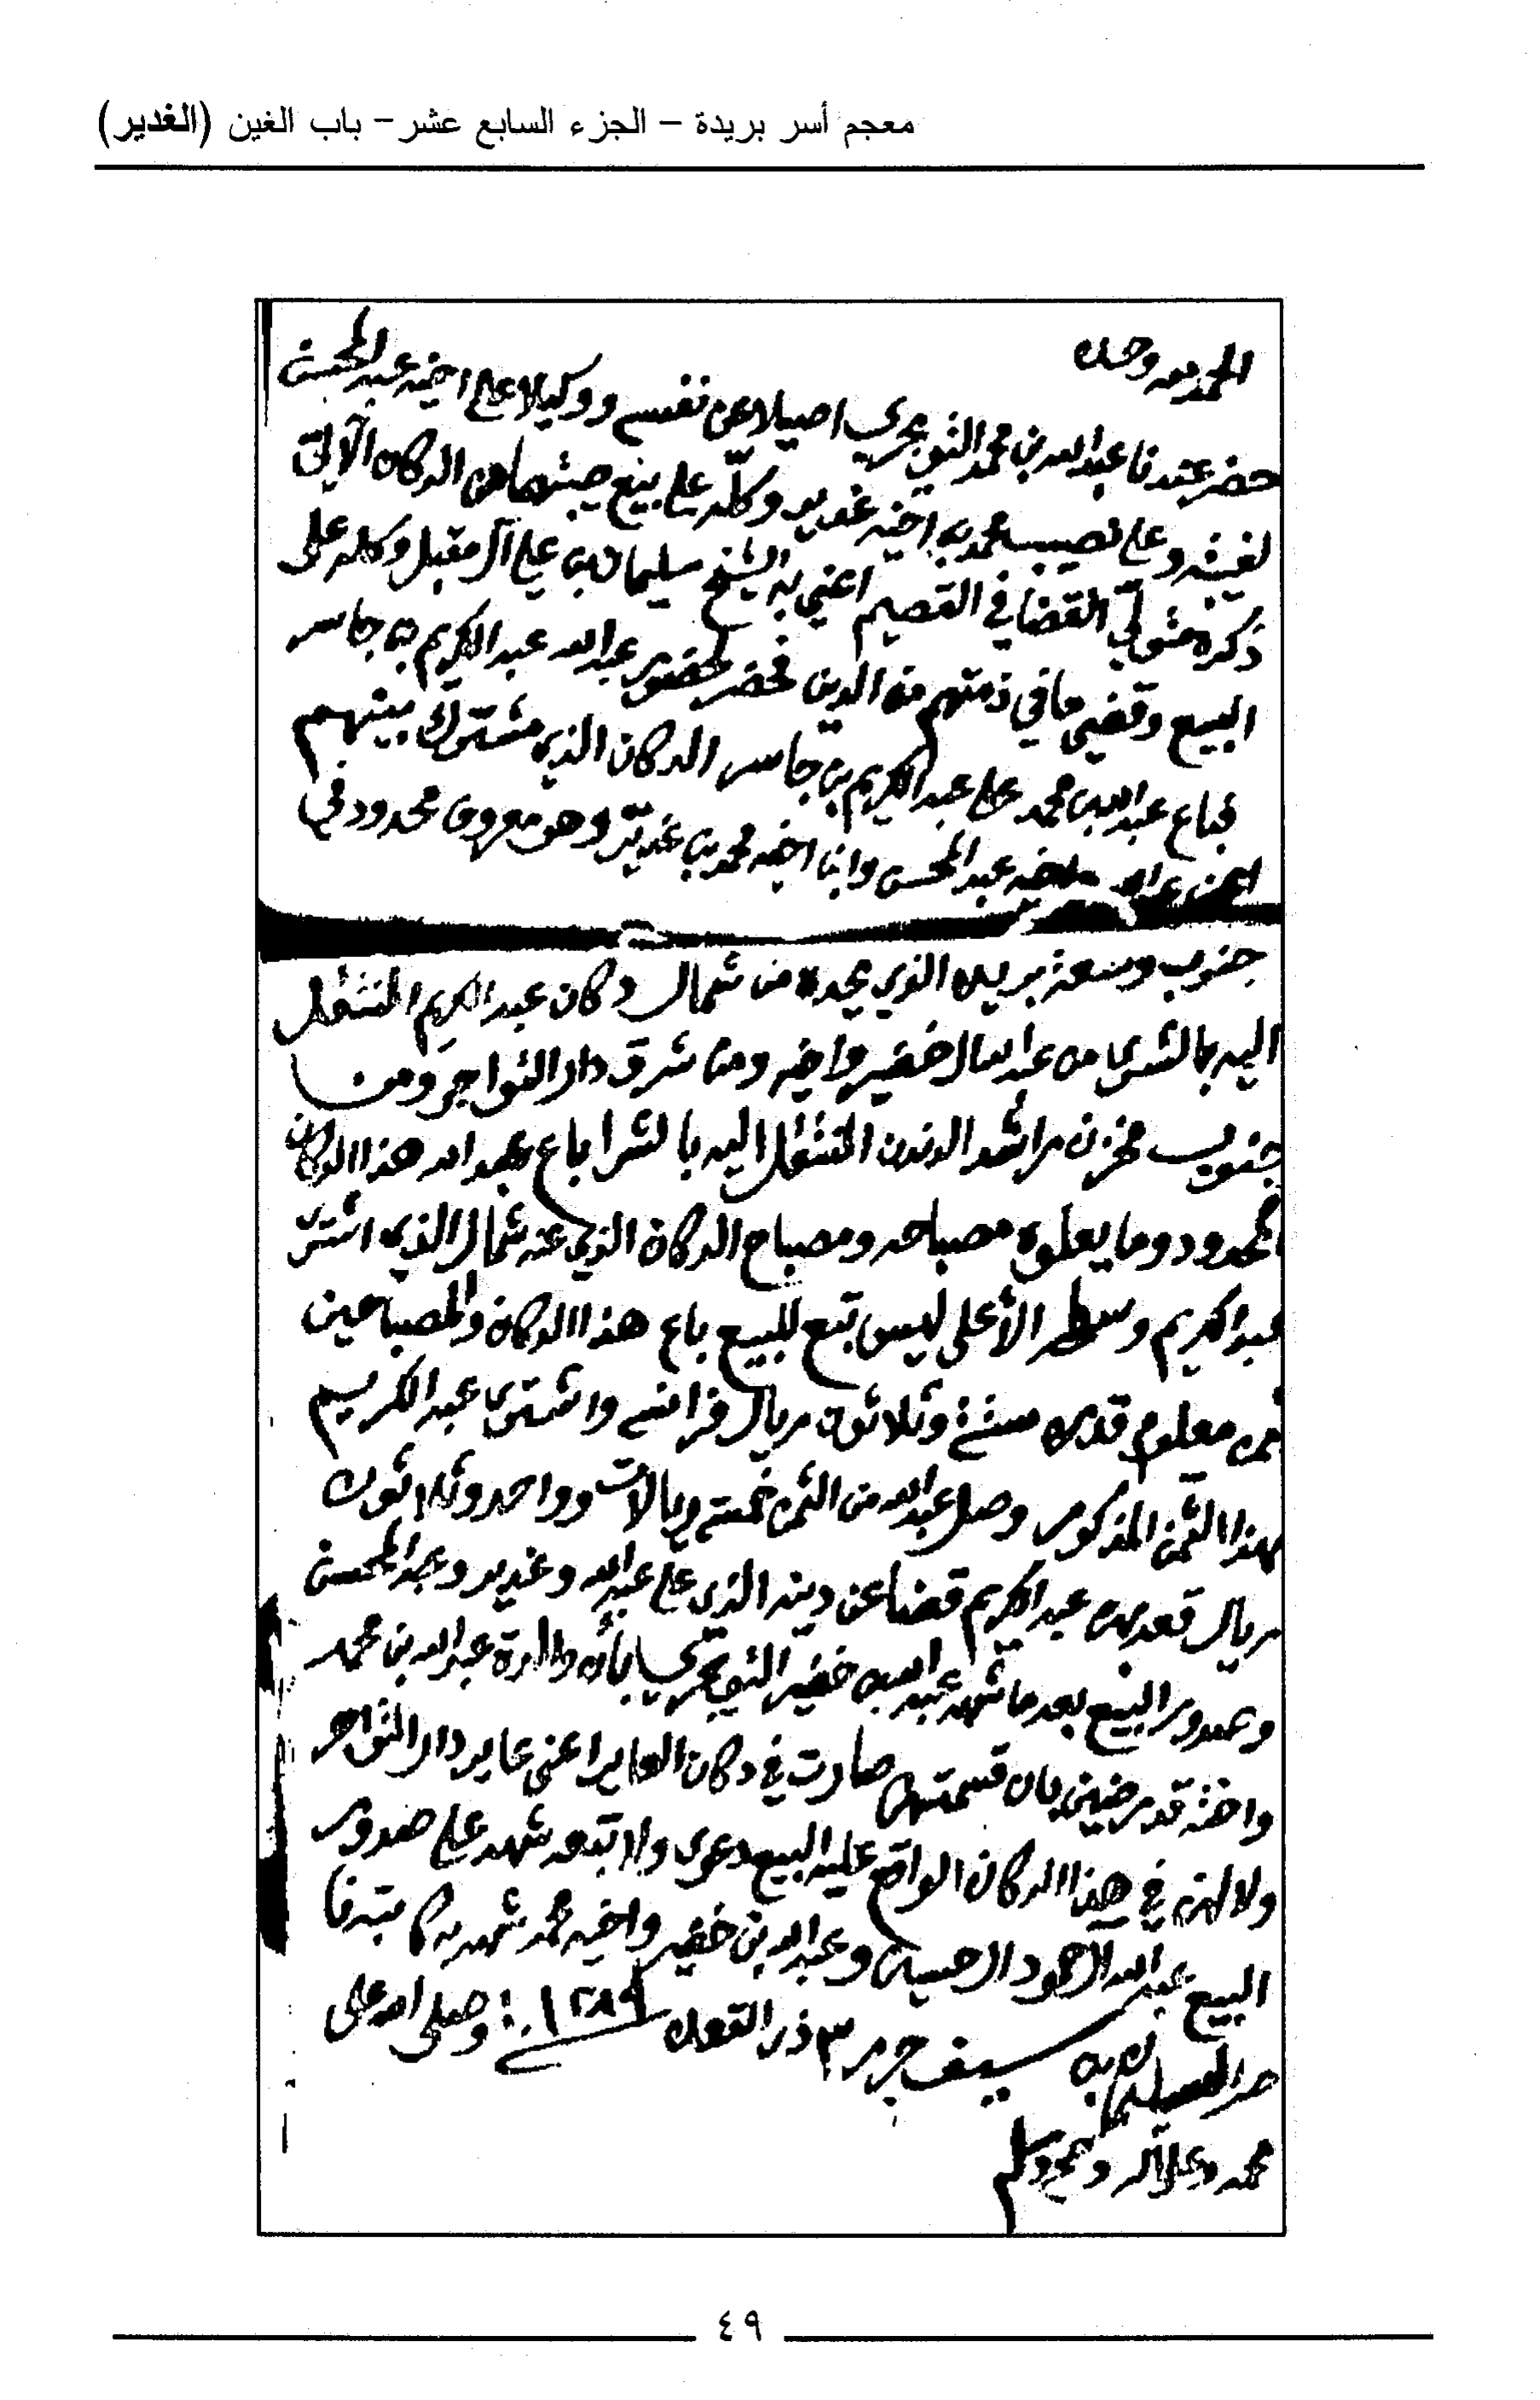 معجم أسر بريدة – الجزء السابع عشر – باب الغين (الغدير)
الحمد لله وحده
حضر عندنا عبدالله بن محمد التويجري اصيلا عن نفسه ووكيلا على اخيه عبدالمحسن
لغيبته وعلى نصيب محمد بن اخيه غدير وكله على بيع حيث هما من الدكان الآتي
ذكره متولي القضا في القصيم اعني به الشيخ سليمان بن علي آل مقبل وكله على
البيع وقضى ما في ذمتهم من الدين فحضر لحضور عبدالله عبدالكريم بن جاسر
فباع عبدالله بن محمد على عبدالكريم بن جاسر الدكان الذي مشترك بينهم
اعني عبدالله واخيه عبدالمحسن وابنا اخيه محمد بن غدير وهو معروف محدود في
جنوب وسعة بريده الذي يحده من شمال دكان عبدالكريم المنتقل
اليه بالشرى من عبدالله ال خضير واخيه ومن شرق دار التواجر ومن
جنوب مخزن راشد الدندن المنتقل اليه بالشرا باع عبدالله هذا الدكان
المحدود وما يعلوه مصباحه ومصباح الدكان الذي عنه شمال الذي اشترى
عبدالكريم وسطحه الأعلى ليس تبع للبيع باع هذا الدكان والمصباحين
ثمن معلوم قدره ستة وثلاثون ريال فرانسه واشترى عبدالكريم
بهذا الثمن المذكور وصل عبدالله من الثمن خمسة ريالات وواحد وثلاثون
ريال قعدهن عبدالكريم قضا عن دينه الذي على عبدالله وغدير وعبدالمحسن
وصدور البيع بعد ما شهد عبدالله بن خضير التويجري بأن والدة عبدالله بن محمد
واخته قد رضين بان قسمتهن صارت في دكان العاير اعني عاير دار التواجر
ولا لهن في هذا الدكان الواقع عليه البيع دعوى ولا تبعه شهد على صدور
البيع عبدالله الحمود ال حسين وعبدالله بن خضير واخيه محمد شهد به كاتبه
سيف جرر ٣ ذو القعده ١٢٨٩ وصلى الله على
محمد وعلى آله وصحبه وسلم
٤٩